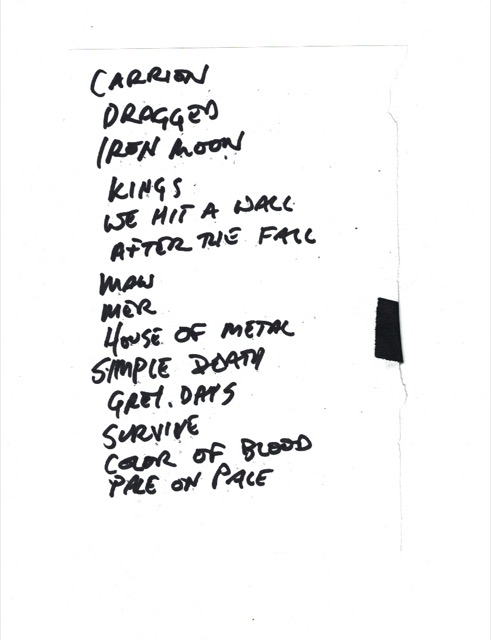 CARRION
DRAGGED
IRON MOON
KINGS
WE HIT A WALL
AFTER THE FALL
MAW
MER
HOUSE OF METAL
SIMPLE DEATH
GREY. DAYS
SURVIVE
COLOR OF BLOOD
PALE ON PALE